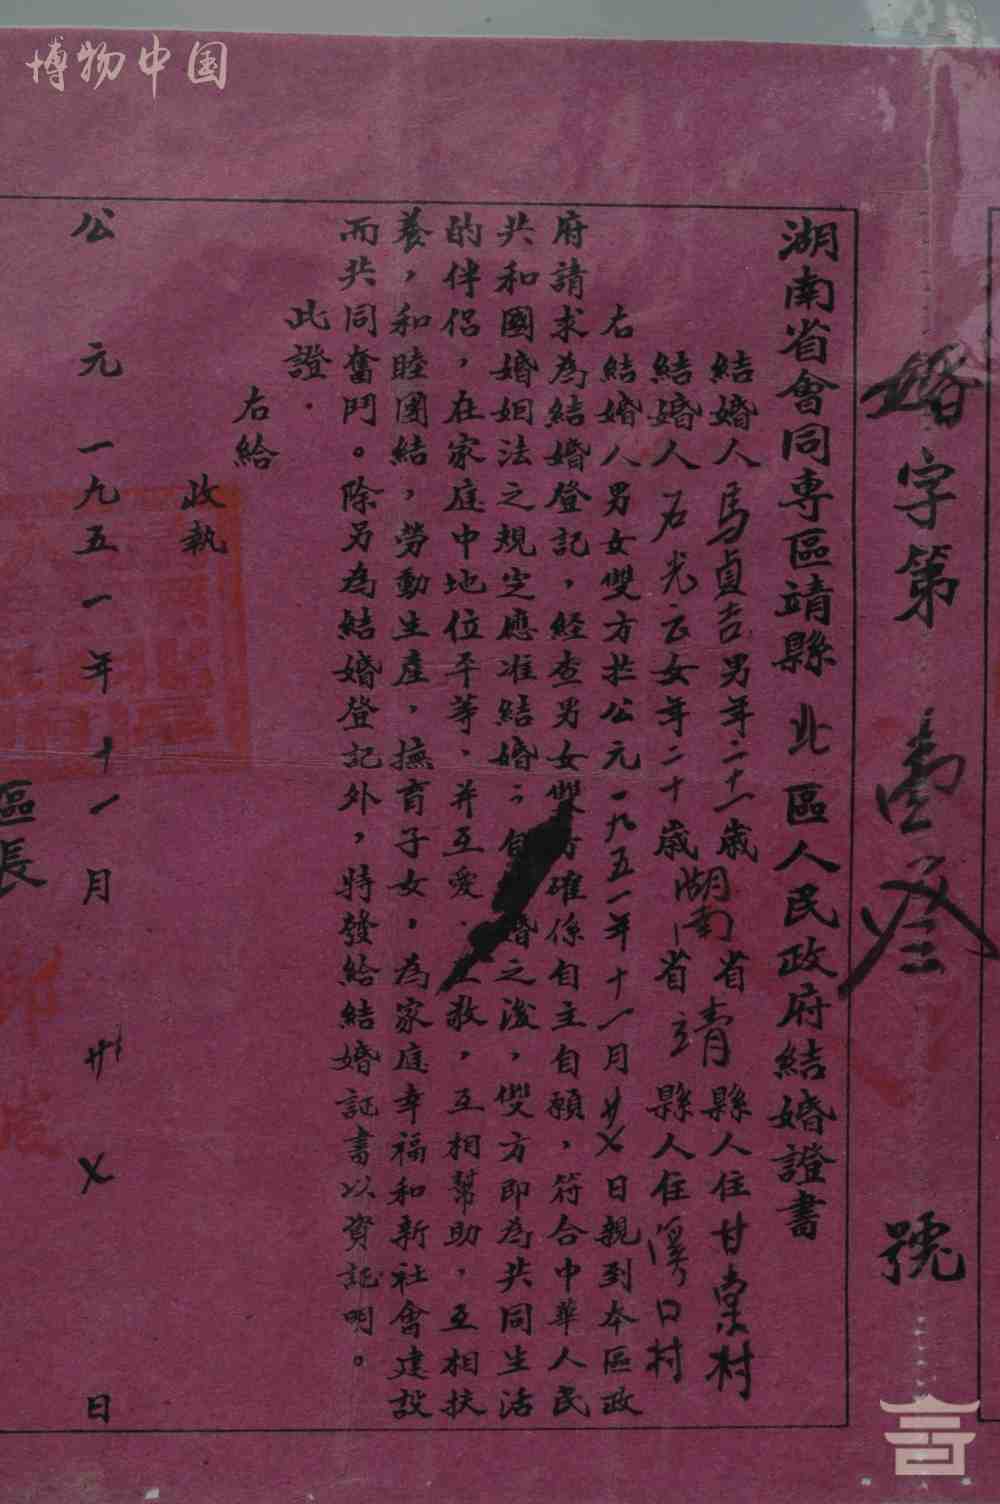 博物中国
婚字第壹叁號
湖南省會同專區靖縣北區人民政府結婚證書
結婚人馬貞吉男年二十一歲湖南省靖縣人住甘棠村
結婚人石光云女年二十歲省縣人住溪口村
右結婚人男女雙方於公元一九五一年十一月廿㐅日親到本區政
府請求為結婚登記，經查男女雙方確係自主自願，符合中華人民
共和國婚姻法之規定應准結婚；自婚之後，雙方即為共同生活
的伴侶，在家庭中地位平等．并互愛．敬，互相幫助，互相扶
養，和睦團結，勞動生產，撫育子女，為家庭幸福和新社會建設
而共同奮鬥。除另為結婚登記外，特發給結婚証書以資証明。
此證．
右給
收執
區長
公元一九五一年十一月廿㐅日